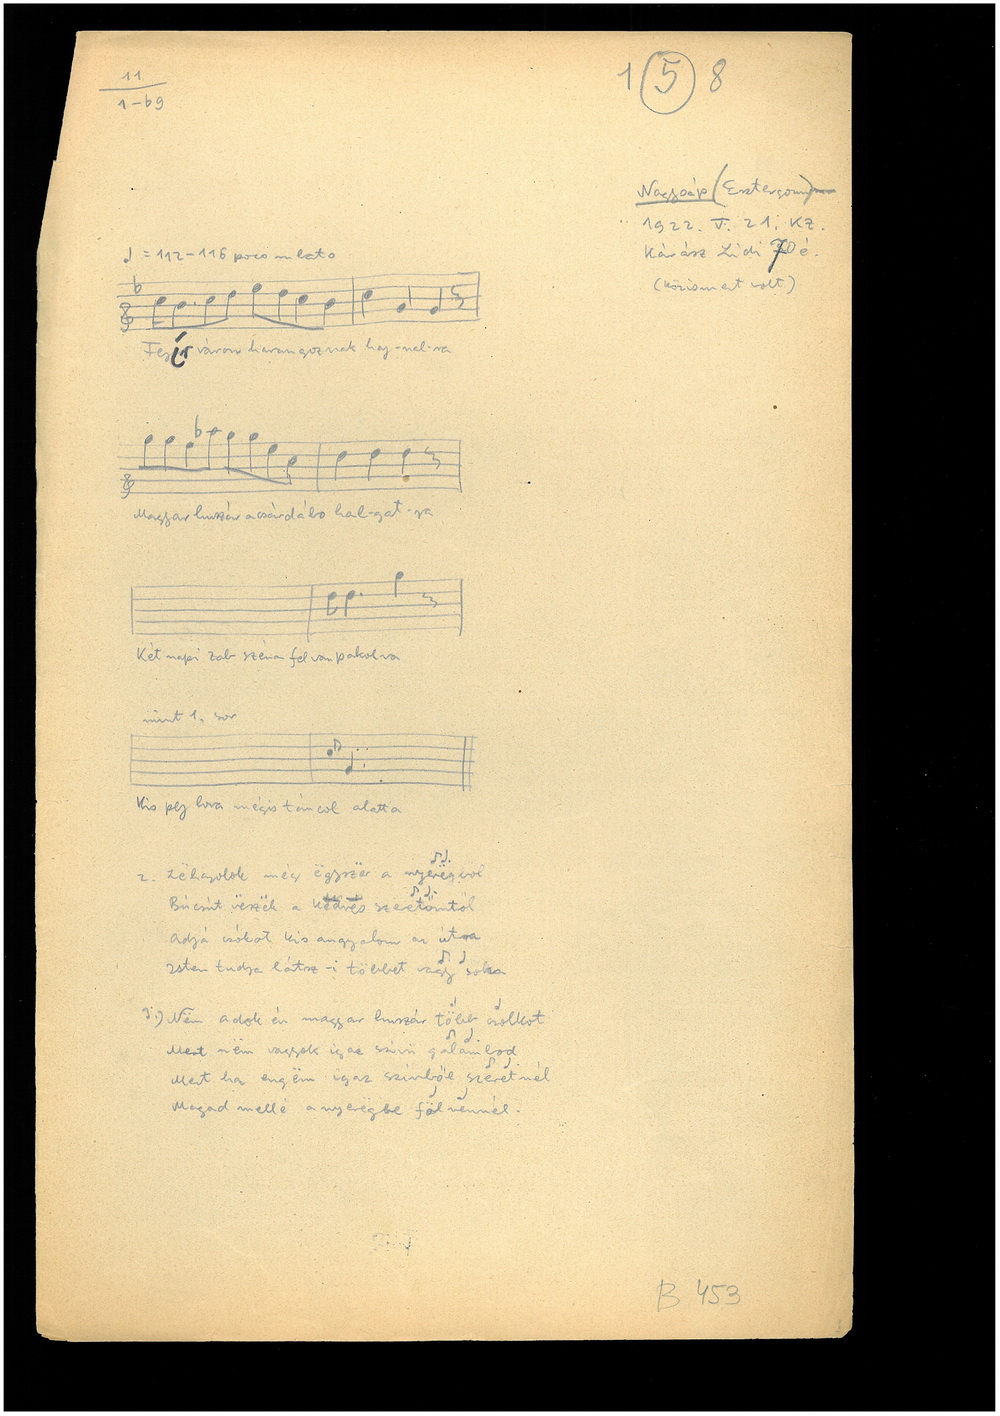 11
1-b9
1 5 8
Nagysáp (Esztergom)
1922. V. 21. Kz.
Kárász Lidi 70 é.
(közismert volt)
♩ = 112–116 poco rubato
Fejírváron harangoznak haj-nal-ra
Magyar huszár a csárdábo hal-gat-ja
Két napi zab széna fel van pakolva
mint 1. sor
Kis pej lova mégis táncol alatta
2. Lëhajolok még ëgyszër a nyerëgiről
Búcsút vëszëk a kedves szeretömtöl
Adjá csókot kis angyalom az útra
Isten tudja látsz-i többet vagy soha
3.) Nëm adok én magyar huszár több csólkot
Mert nëm vagyok igaz szívü galambod
Mert ha engëm igaz szívböl szeretnél
Magad mellé a nyerëgbe föl vennél.
B 453